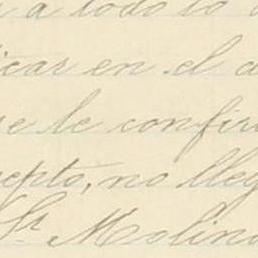 a todo lo
icar en el a
se le confir
epto, no lleg
Sr Molin